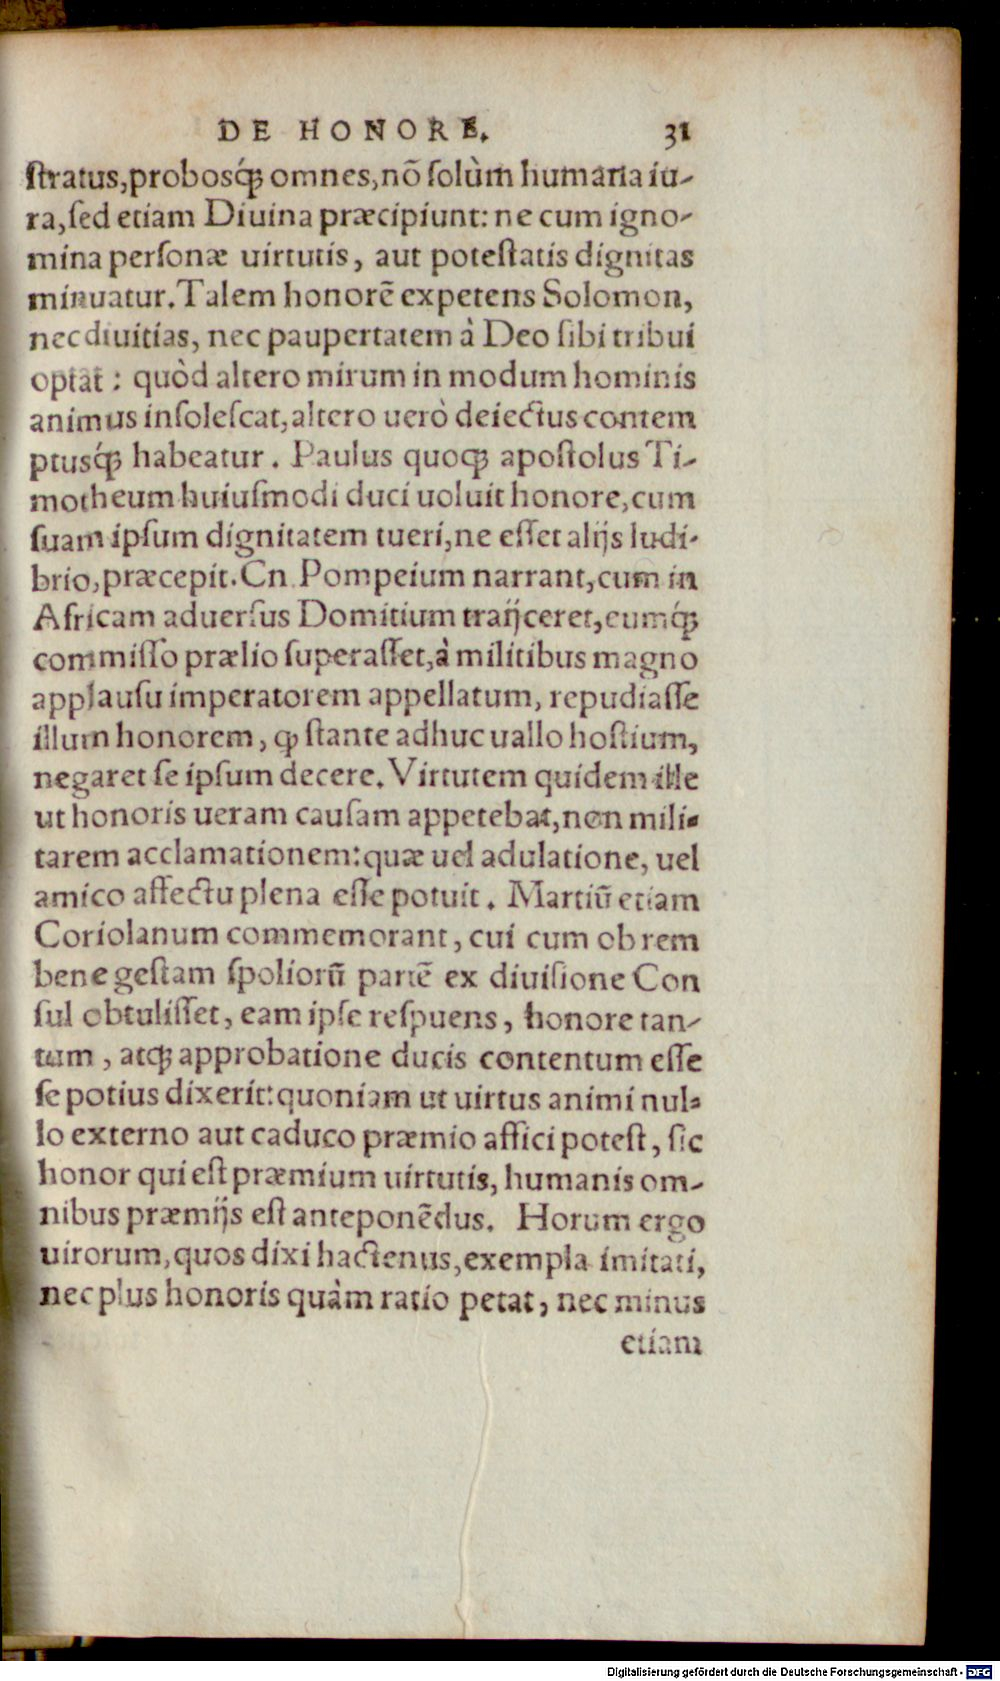 DE HONORE. 31
ſtratus,probosq́ꝫ omnes,nõ ſolùm humana iu-
ra,ſed etiam Diuina præcipiunt: ne cum igno-
mina perſonæ uirtutis, aut poteſtatis dignitas
minuatur. Talem honorẽ expetens Solomon,
nec diuitias, nec paupertatem à Deo ſibi tribui
optat: quòd altero mirum in modum hominis
animus inſoleſcat,altero uerò deiectus contem
ptusq́ꝫ habeatur. Paulus quoqꝫ apoſtolus Ti-
motheum huiuſmodi duci uoluit honore,cum
ſuam ipſum dignitatem tueri,ne eſſet alijs ludi-
brio,præcepit. Cn Pompeium narrant,cum in
Africam aduerſus Domitium traijceret,eumq́ꝫ
commiſſo prælio ſuperaſſet,à militibus magno
applauſu imperatorem appellatum, repudiaſſe
illum honorem, ꝙ ſtante adhuc uallo hoſtium,
negaret ſe ipſum decere. Virtutem quidem ille
ut honoris ueram cauſam appetebat,non mili-
tarem acclamationem:quæ uel adulatione, uel
amico affectu plena eſſe potuit. Martiũ etiam
Coriolanum commemorant, cui cum ob rem
bene geſtam ſpoliorũ partẽ ex diuiſione Con
ſul obtuliſſet, eam ipſe reſpuens, honore tan-
tum, atqꝫ approbatione ducis contentum eſſe
ſe potius dixerit:quoniam ut uirtus animi nul-
lo externo aut caduco præmio affici poteſt, ſic
honor qui eſt præmium uirtutis, humanis om-
nibus præmijs eſt anteponẽdus. Horum ergo
uirorum,quos dixi hactenus,exempla imitati,
nec plus honoris quàm ratio petat, nec minus
etiam
Digitalisierung gefördert durch die Deutsche Forschungsgemeinschaft - DFG